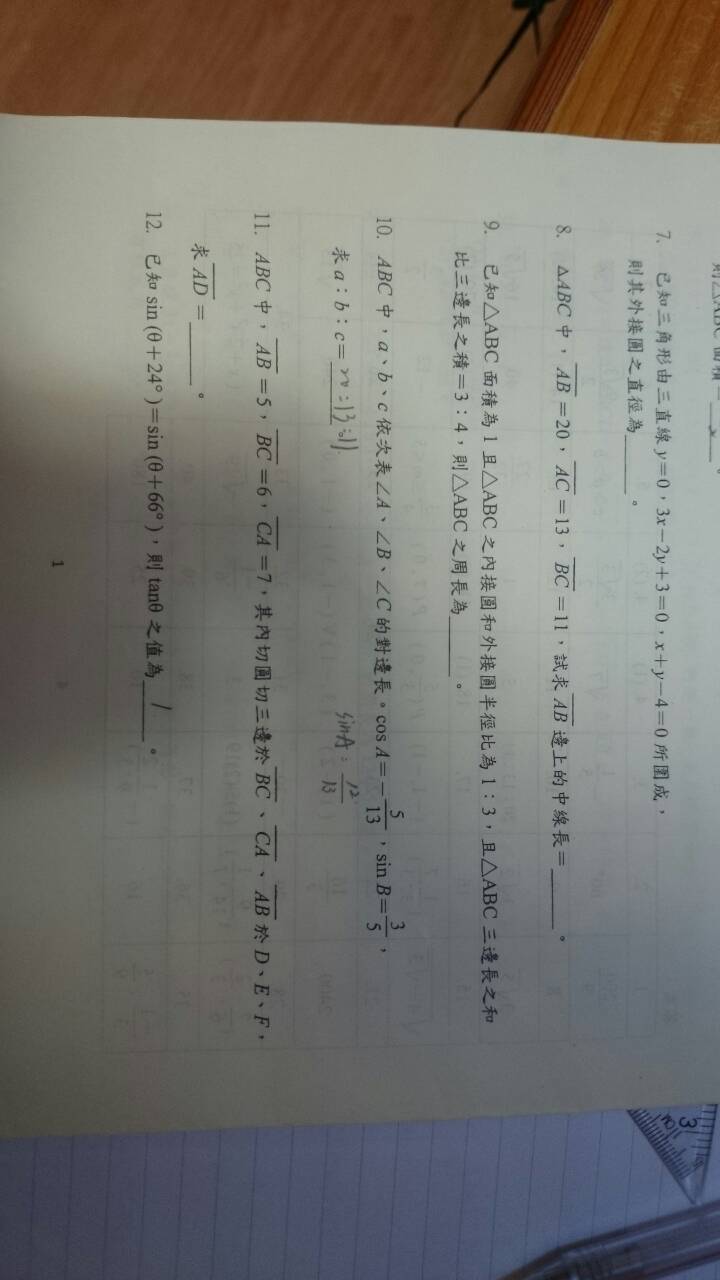 則△ABC 面積=____。
7. 已知三角形由三直線 y=0，3x−2y+3=0，x+y−4=0 所圍成，
則其外接圓之直徑為____。
8. △ABC 中，AB=20，AC=13，BC=11，試求 AB 邊上的中線長=____。
9. 已知△ABC 面積為 1 且△ABC 之內接圓和外接圓半徑比為 1：3，且△ABC 三邊長之和
比三邊長之積=3：4，則△ABC 之周長為____。
10. ABC 中，a、b、c 依次表∠A、∠B、∠C 的對邊長。cos A=−5/13，sin B=3/5，
求 a：b：c=20:13:11.
sinA=12/13
11. ABC 中，AB=5，BC=6，CA=7，其內切圓切三邊於 BC、CA、AB 於 D、E、F，
求 AD=____。
12. 已知 sin (θ+24°)=sin (θ+66°)，則 tanθ 之值為 1 。
1
3